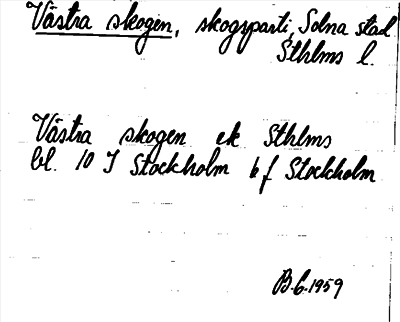 Västra skogen, skogsparti, Solna stad
Sthlms l.
Västra skogen ek Sthlms
bl. 10 I Stockholm b f Stockholm
B.G. 1959